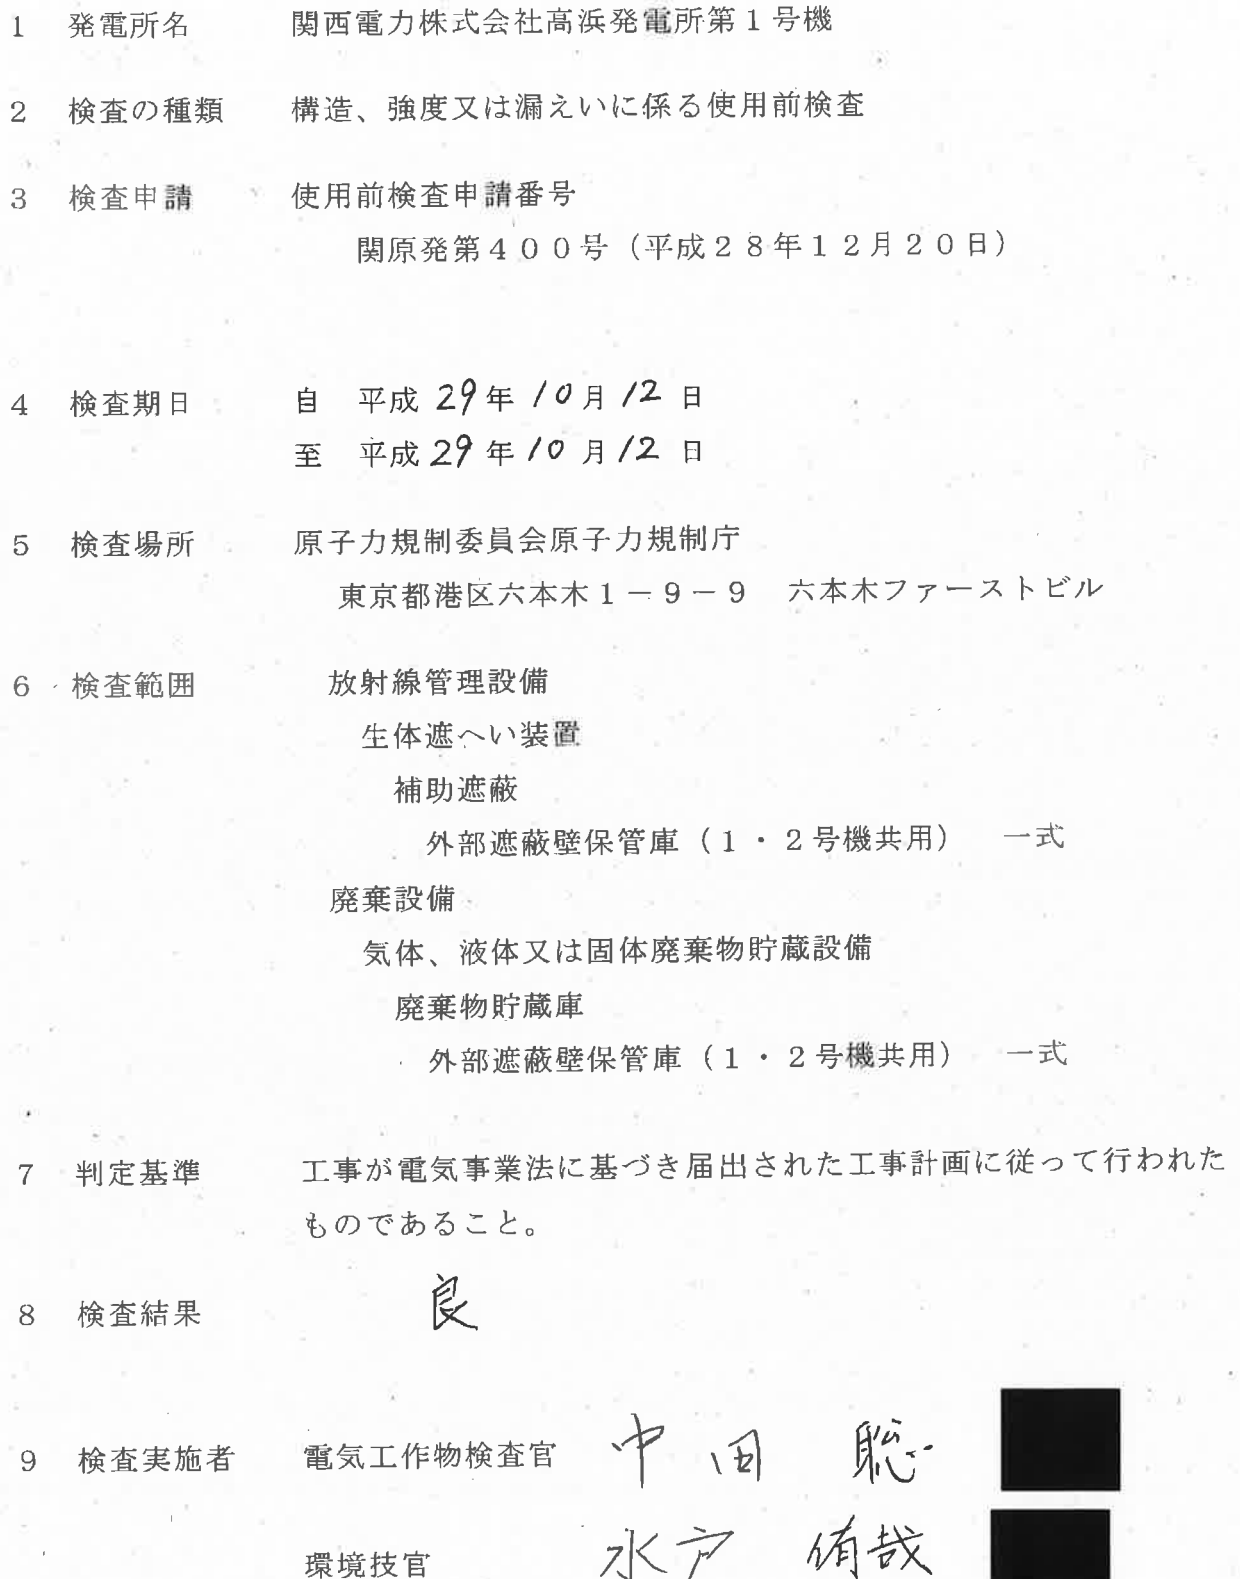 1 発電所名 関西電力株式会社高浜発電所第1号機
2 検査の種類 構造、強度又は漏えいに係る使用前検査
3 検査申請 使用前検査申請番号
関原発第400号(平成28年12月20日)
4 検査期日 自 平成 29年 10月 12 日
至 平成 29年 10月 12 日
5 検査場所 原子力規制委員会原子力規制庁
東京都港区六本木1-9-9 六本木ファーストビル
6 検査範囲 放射線管理設備
生体遮へい装置
補助遮蔽
外部遮蔽壁保管庫(1・2号機共用) 一式
廃棄設備
気体、液体又は固体廃棄物貯蔵設備
廃棄物貯蔵庫
外部遮蔽壁保管庫(1・2号機共用) 一式
7 判定基準 工事が電気事業法に基づき届出された工事計画に従って行われた
ものであること。
8 検査結果 良
9 検査実施者 電気工作物検査官 中田 聡
環境技官 水戸 侑哉